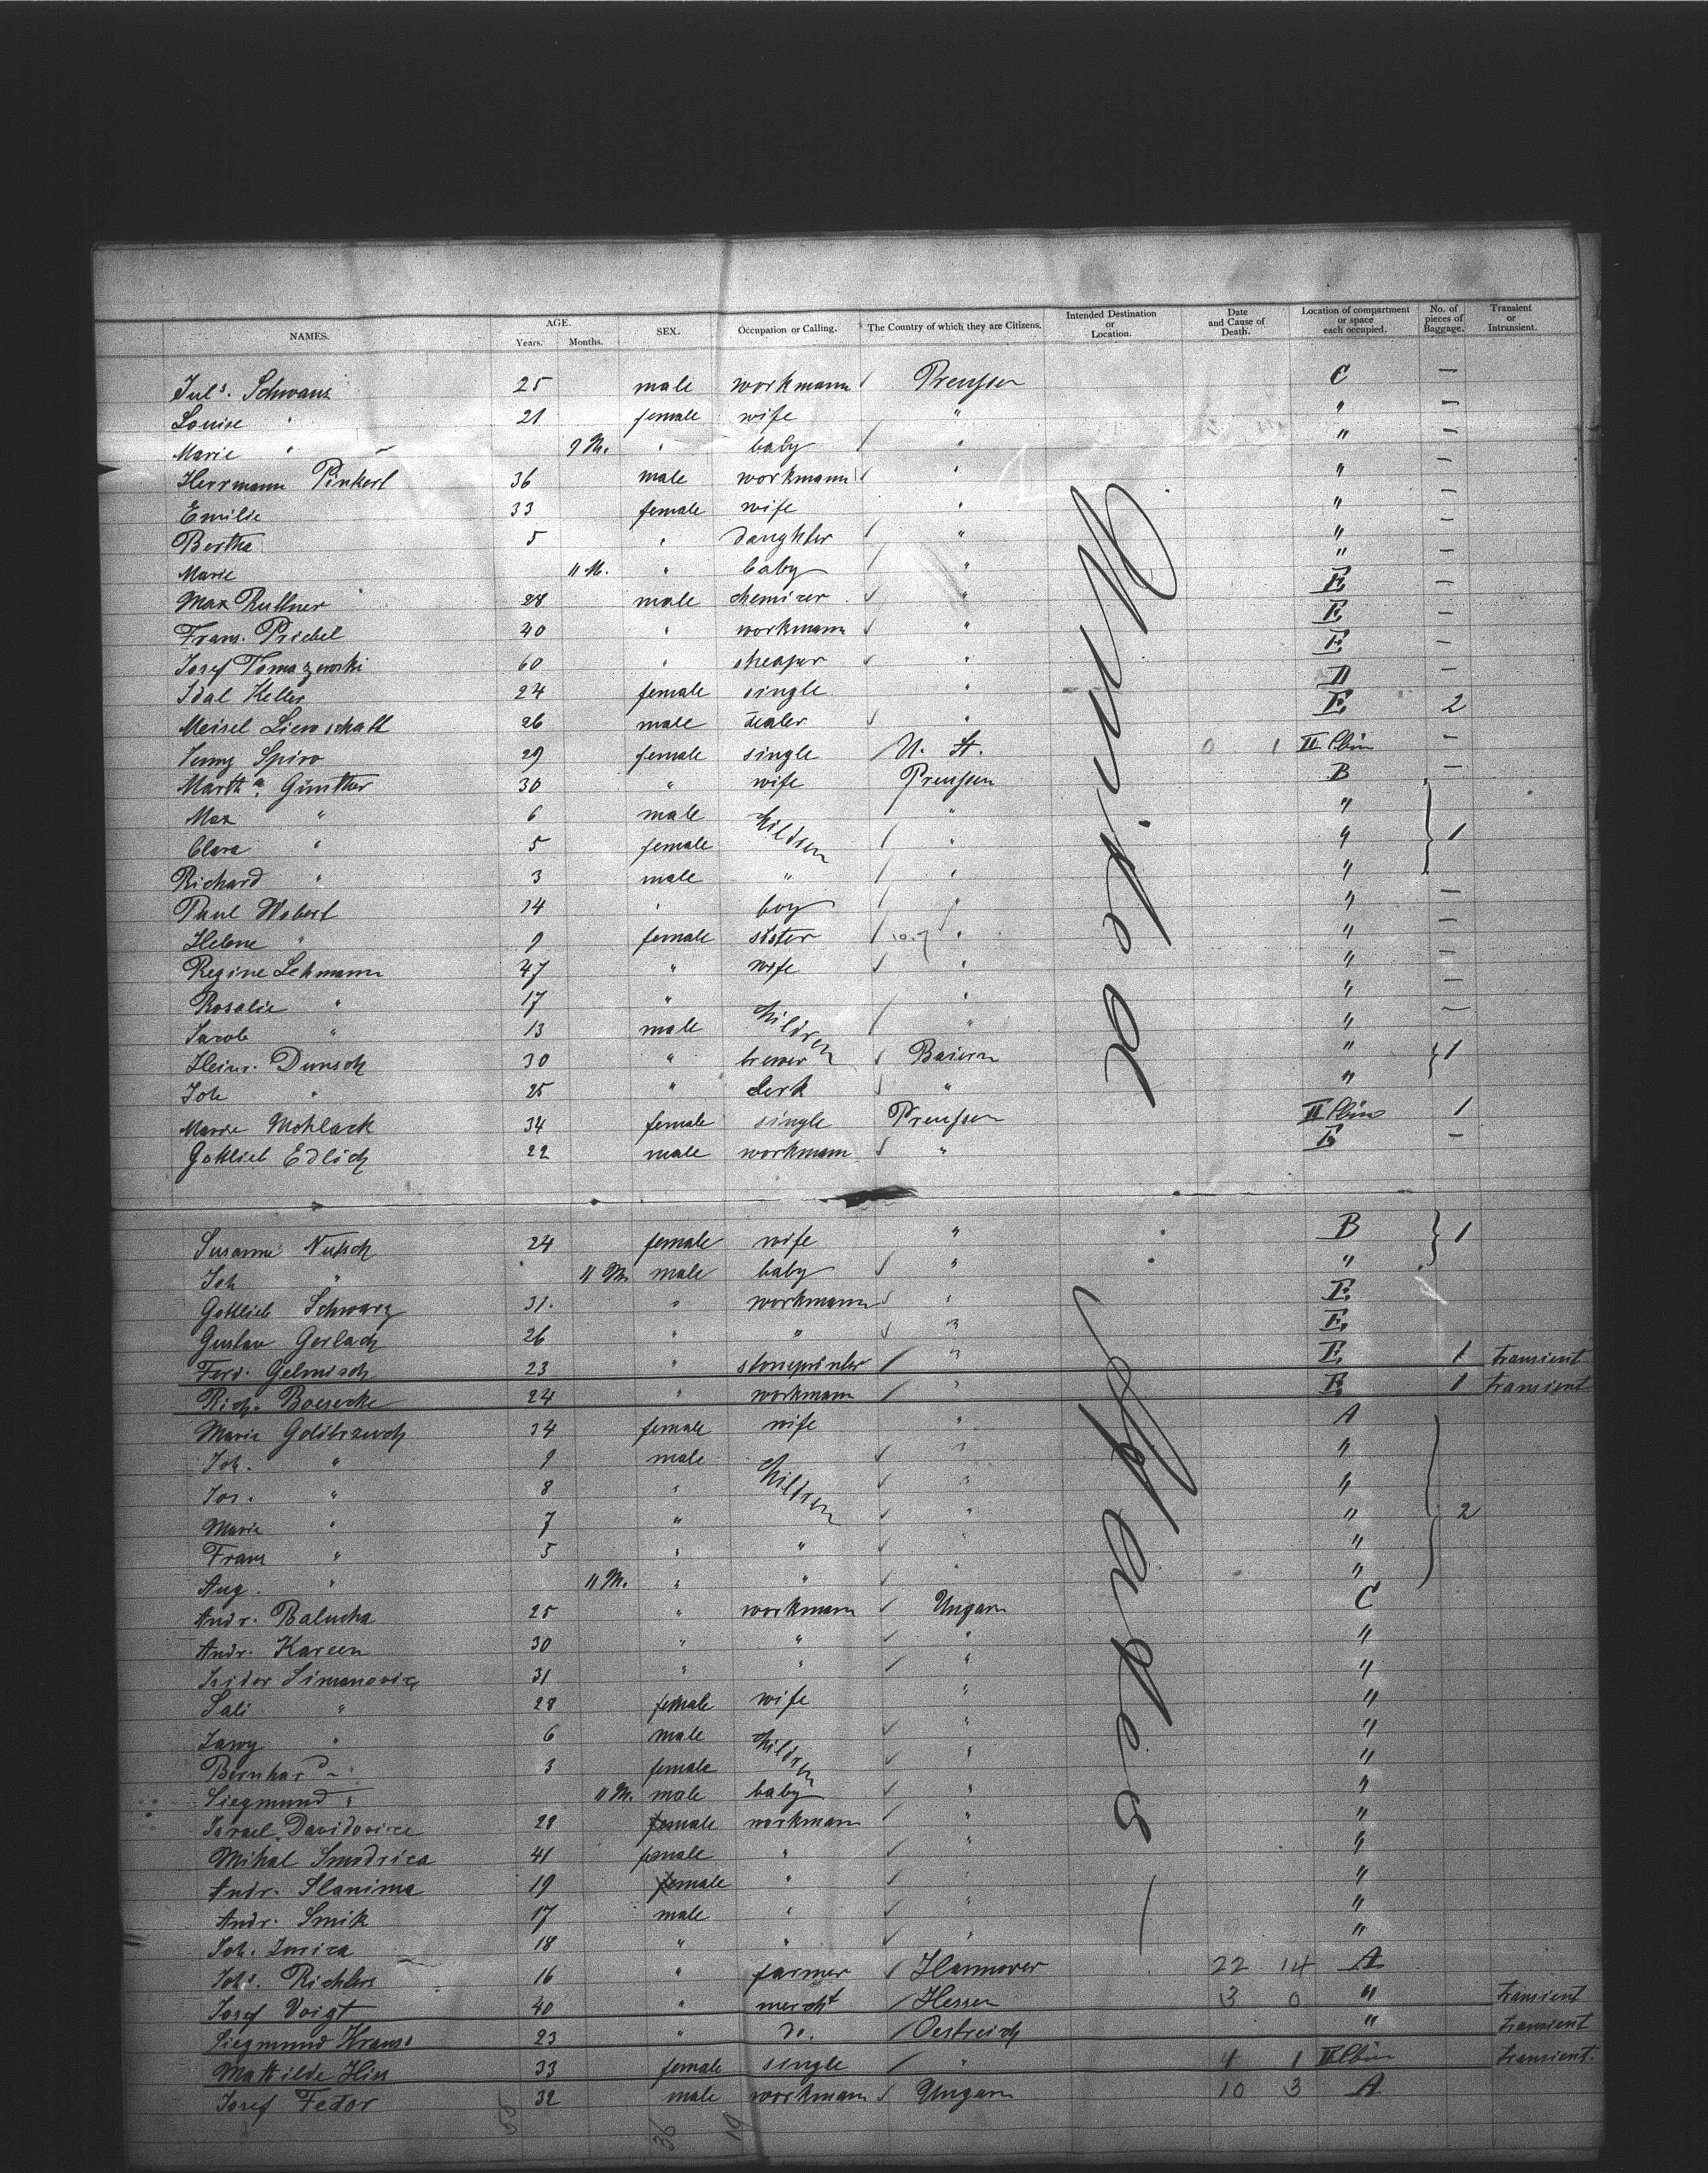 NAMES. AGE. Years. Months. SEX. Occupation or Calling. The Country of which they are Citizens. Intended Destination or Location. Date and Cause of Death. Location of compartment or space each occupied. No. of pieces of Baggage. Transient or Intransient.
Juls. Schwanz 25 male workmann Preussen C —
Louise " 21 female wife " " —
Marie " 9 M. " baby " " —
Herrmann Pinkert 36 male workmann " " —
Emilie 33 female wife " " —
Bertha 5 " daughter " " —
Marie 11 M. " baby " " —
Max Ruttner 28 male chemiser " E —
Franz. Prichel 40 " workmann " E —
Josef Tomazewski 60 " " E —
Idal Keller 24 female single " D —
Meisel 26 male dealer " E 2
Jenny Spiro 29 female single U. St. 0 1 II Cbin —
Martha Günther 30 " wife Preussen B —
Max " 6 male children " "
Clara " 5 female " " 1
Richard " 3 male " " "
Paul Wobert 14 " boy " " —
Helene " 9 female sister " " —
Regine Lehmann 47 " wife " " —
Rosalie " 17 " children " " —
Jacob " 13 male " " —
Heinr. Dunsch 30 " brewer Baiern " 1
Joh " 25 " clerk " "
Marie Mohlack 34 female single Preussen II Cbin 1
Gottlieb Edlich 22 male workmann " E —
United States
Susanne Nutsch 24 female wife " B 1
Joh " 11 M. male baby " "
Gottlieb Schwarz 31. " workmann " E
Gustav Gerlach 26 " " " E
Ferd. Gelmisch 23 " stoneprinter " E 1 transient
Rich. Boesecke 24 " workmann " E 1 transient
Marie 34 female wife " A
Joh. " 9 male children " "
Jos. " 8 " " "
Marie " 7 " " " 2
Franz " 5 " " " "
Aug. " 11 M. " " " "
Andr. Balucha 25 " workmann Ungarn C
Andr. Kareen 30 " " " "
Isidor Simanovicz 31 " " " "
Sali " 28 female wife " "
" 6 male children " "
Bernhard " 3 female " "
Siegmund " 11 M. male baby " "
Israel Davidovice 28 female workmann " "
Mihal Smodrica 41 female " " "
Andr. Slanima 19 female " " "
Andr. Smik 17 male " " "
Joh. 18 " " " "
Johs. Richters 16 " farmer Hannover 22 14 A
Josef Voigt 40 " mercht Hessen 3 0 " transient
Siegmund Kraus 23 " do. Oestreich " transient
Mathilde Hiss 33 female single " 4 1 II Cbin transient.
Josef Fedor 32 male workmann Ungarn 10 3 A
55 36 19